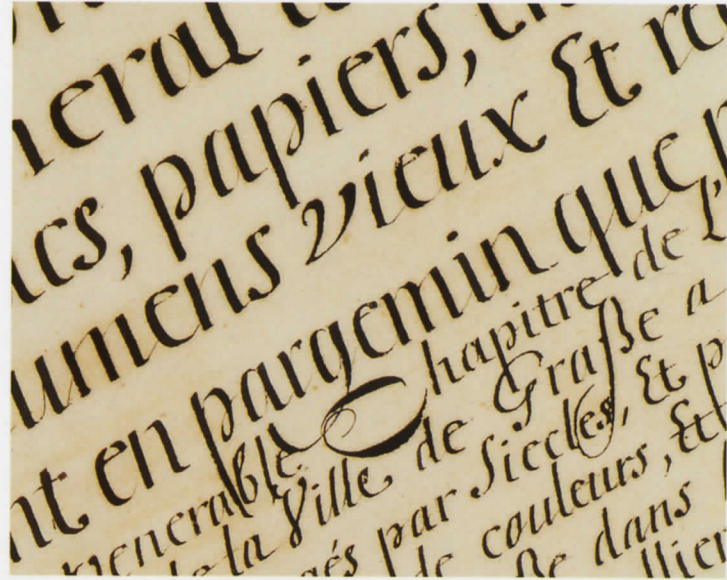 neral
acs, papiers,
umens vieux Et re
nt en pargemin que p
venerable Chapitre de L'
de la Ville de Graße a
gés par Siecles, Et p
de couleurs, Et
ße dans